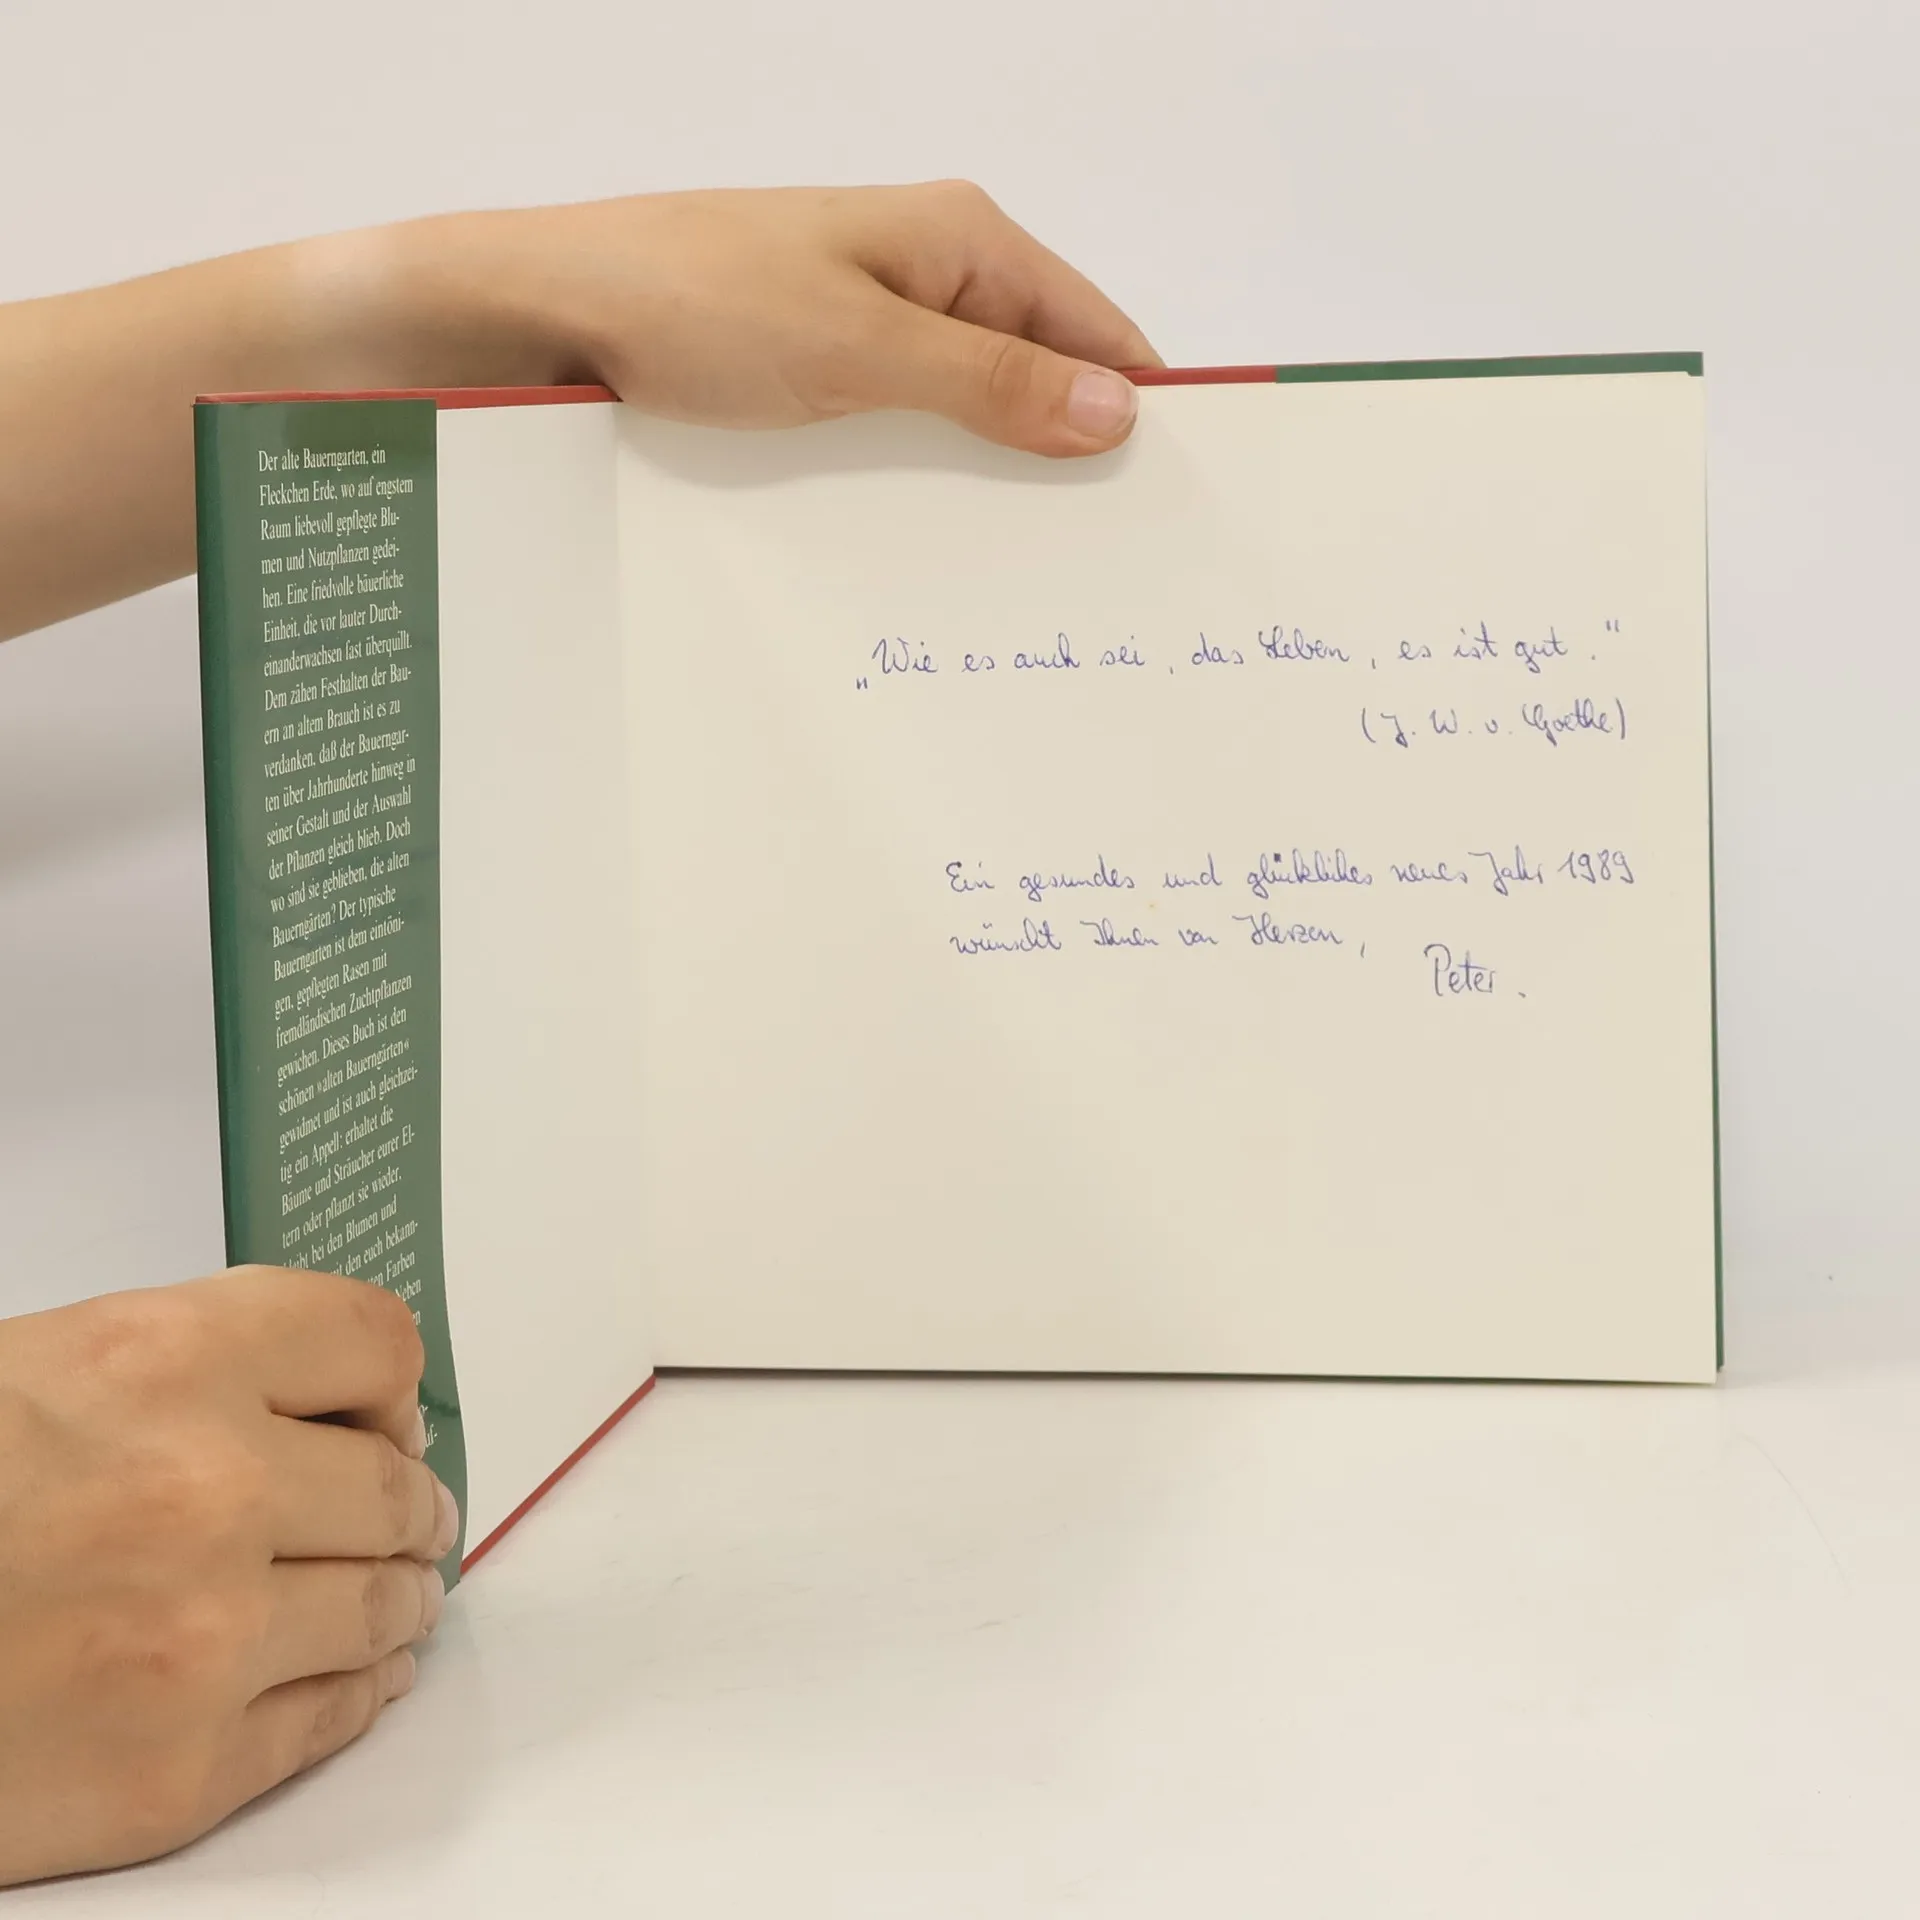 Der alte Bauerngarten, ein
Fleckchen Erde, wo auf engstem
Raum liebevoll gepflegte Blu-
men und Nutzpflanzen gedei-
hen. Eine friedvolle bäuerliche
Einheit, die vor lauter Durch-
einanderwachsen fast überquillt.
Dem zähen Festhalten der Bau-
ern an altem Brauch ist es zu
verdanken, daß der Bauerngar-
ten über Jahrhunderte hinweg in
seiner Gestalt und der Auswahl
der Pflanzen gleich blieb. Doch
wo sind sie geblieben, die alten
Bauerngärten? Der typische
Bauerngarten ist dem eintöni-
gen, gepflegten Rasen mit
fremdländischen Zuchtpflanzen
gewichen. Dieses Buch ist den
schönen »alten Bauerngärten«
gewidmet und ist auch gleichzei-
tig ein Appell: erhaltet die
Bäume und Sträucher eurer El-
tern oder pflanzt sie wieder,
bleibt bei den Blumen und
mit den euch bekann-
ten Farben
Neben
„Wie es auch sei, das Leben, es ist gut."
(J. W. v. Goethe)
Ein gesundes und glückliches neues Jahr 1989
wünscht Ihnen von Herzen,
Peter.